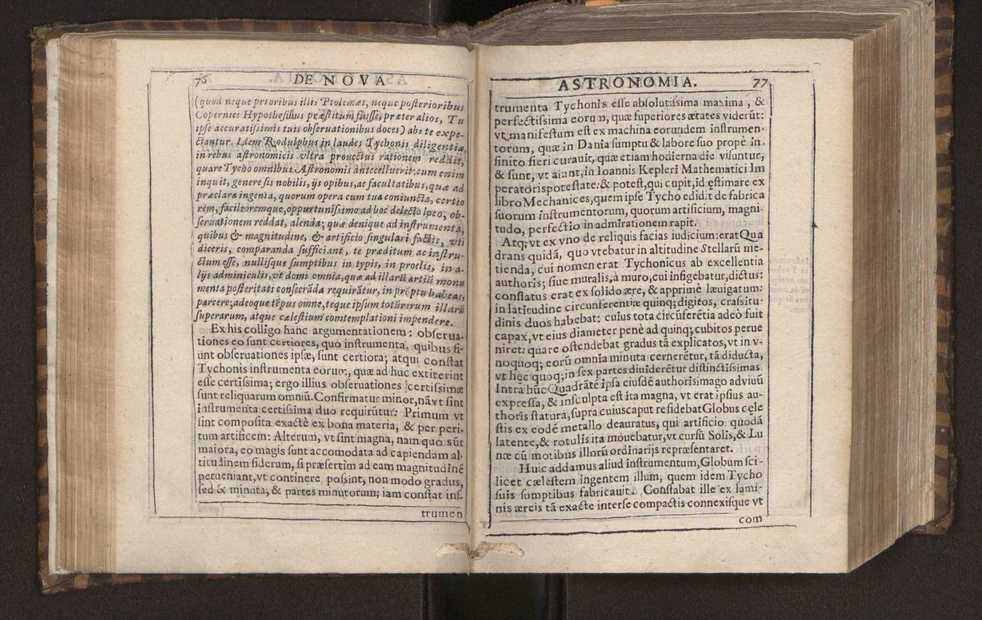 76 DE NOVA
(quod neque prioribus illis Ptolemæi, neque posterioribus
Copernici Hypothesibus præstitum fuisse, præter alios, Tu
ipse accuratissimis tuis obseruationibus doces) abs te expe-
ctantur. Idem Rodulphus in laudes Tychonis diligentiæ
in rebus astronomicis vltra prouectus rationem reddit,
quare Tycho omnibus Astronomis antecelluerit: cum enim
inquit, genere sis nobilis, ijs opibus, ac facultatibus, quæ ad
præclara ingenia, quorum opera cum tua coniuncta, certio
rem, facilioremque, opportunissimo ad hoc delecto loco, ob-
seruationem reddat, alenda; quæ denique ad instrumenta,
quibus & magnitudine, & artificio singulari factis, vti
diceris, comparanda sufficiant, te præditum ac instru-
ctum esse, nullisque sumptibus in typis, in prœlis, in a-
lijs adminiculis, vt domi omnia, quæ ad illarũ artiũ monu
menta posteritati consecrãda requirãtur, in prõptu habeas,
parcere; adeoque tẽpus omne, teque ipsum totũ rerum illarũ
superarum, atque cælestium comtemplationi impendere.
Ex his colligo hanc argumentationem: obserua-
tiones eo sunt certiores, quo instrumenta, quibus fi-
unt obseruationes ipsæ, sunt certiora; atqui constat
Tychonis instrumenta eorum, quæ ad huc extiterint
esse certissima; ergo illius obseruationes certissimæ
sunt reliquarum omniũ. Confirmatur minor, nã vt sint
instrumenta certissima duo requirũtur: Primum vt
sint composita exactè ex bona materia, & per peri-
tum artificem: Alterum, vt sint magna, nam quo sũt
maiora, eo magis sunt accomodata ad capiendam al-
titudinem siderum, si præsertim ad eam magnitudinẽ
perueniant, vt continere possint, non modo gradus,
sed & minuta, & partes minutorum; iam constat ins-
trumen
ASTRONOMIA. 77
trumenta Tychonis esse absolutissima maxima, &
perfectissima eorum, quæ superiores ætates viderũt:
vt manifestum est ex machina eorundem instrumen-
torum, quæ in Dania sumptu & labore suo propè in-
finito fieri curauit, quæ etiam hodierna die visuntur,
& sunt, vt aiunt, in Ioannis Kepleri Mathematici Im
peratoris potestate: & potest, qui cupit, id ęstimare ex
libro Mechanices, quem ipse Tycho edidit de fabrica
suorum instrumentorum, quorum artificium, magni-
tudo, perfectio in admirationem rapit.
Atq; vt ex vno de reliquis facias iudicium: erat Qua
drans quidã, quo vtebatur in altitudine Stellarũ me-
tienda, cui nomen erat Tychonicus ab excellentia
authoris; siue muralis, à muro, cui infigebatur, dictus:
conflatus erat ex solido ære, & apprimè læuigatum:
in latitudine circunferentiæ quinq; digitos, crassitu-
dinis duos habebat: cuius tota circũferẽtia adeò fuit
capax, vt eius diameter penè ad quinq; cubitos perue
niret: quare ostendebat gradus tã explicatos, vt in v-
noquoq; eorũ omnia minuta cernerẽtur, tã diducta,
vt hęc quoq; in sex partes diuiderẽtur distinctissimas.
Intra hũc Quadrãtẽ ipsa eiusdẽ authoris imago ad viuũ
expressa, & insculpta est ita magna, vt erat ipsius au-
thoris statura, supra cuius caput residebat Globus cęle
stis ex eodẽ metallo deauratus, qui artificio quodã
latente, & rotulis itã mouebatur, vt cursũ Solis, & Lu
næ cũ motibus illorũ ordinarijs repræsentaret.
Huic addamus aliud instrumentum, Globum sci-
licet cælestem ingentem illum, quem idem Tycho
suis sumptibus fabricauit. Constabat ille ex lami-
nis æreis tã exacte interse compactis connexisque vt
com